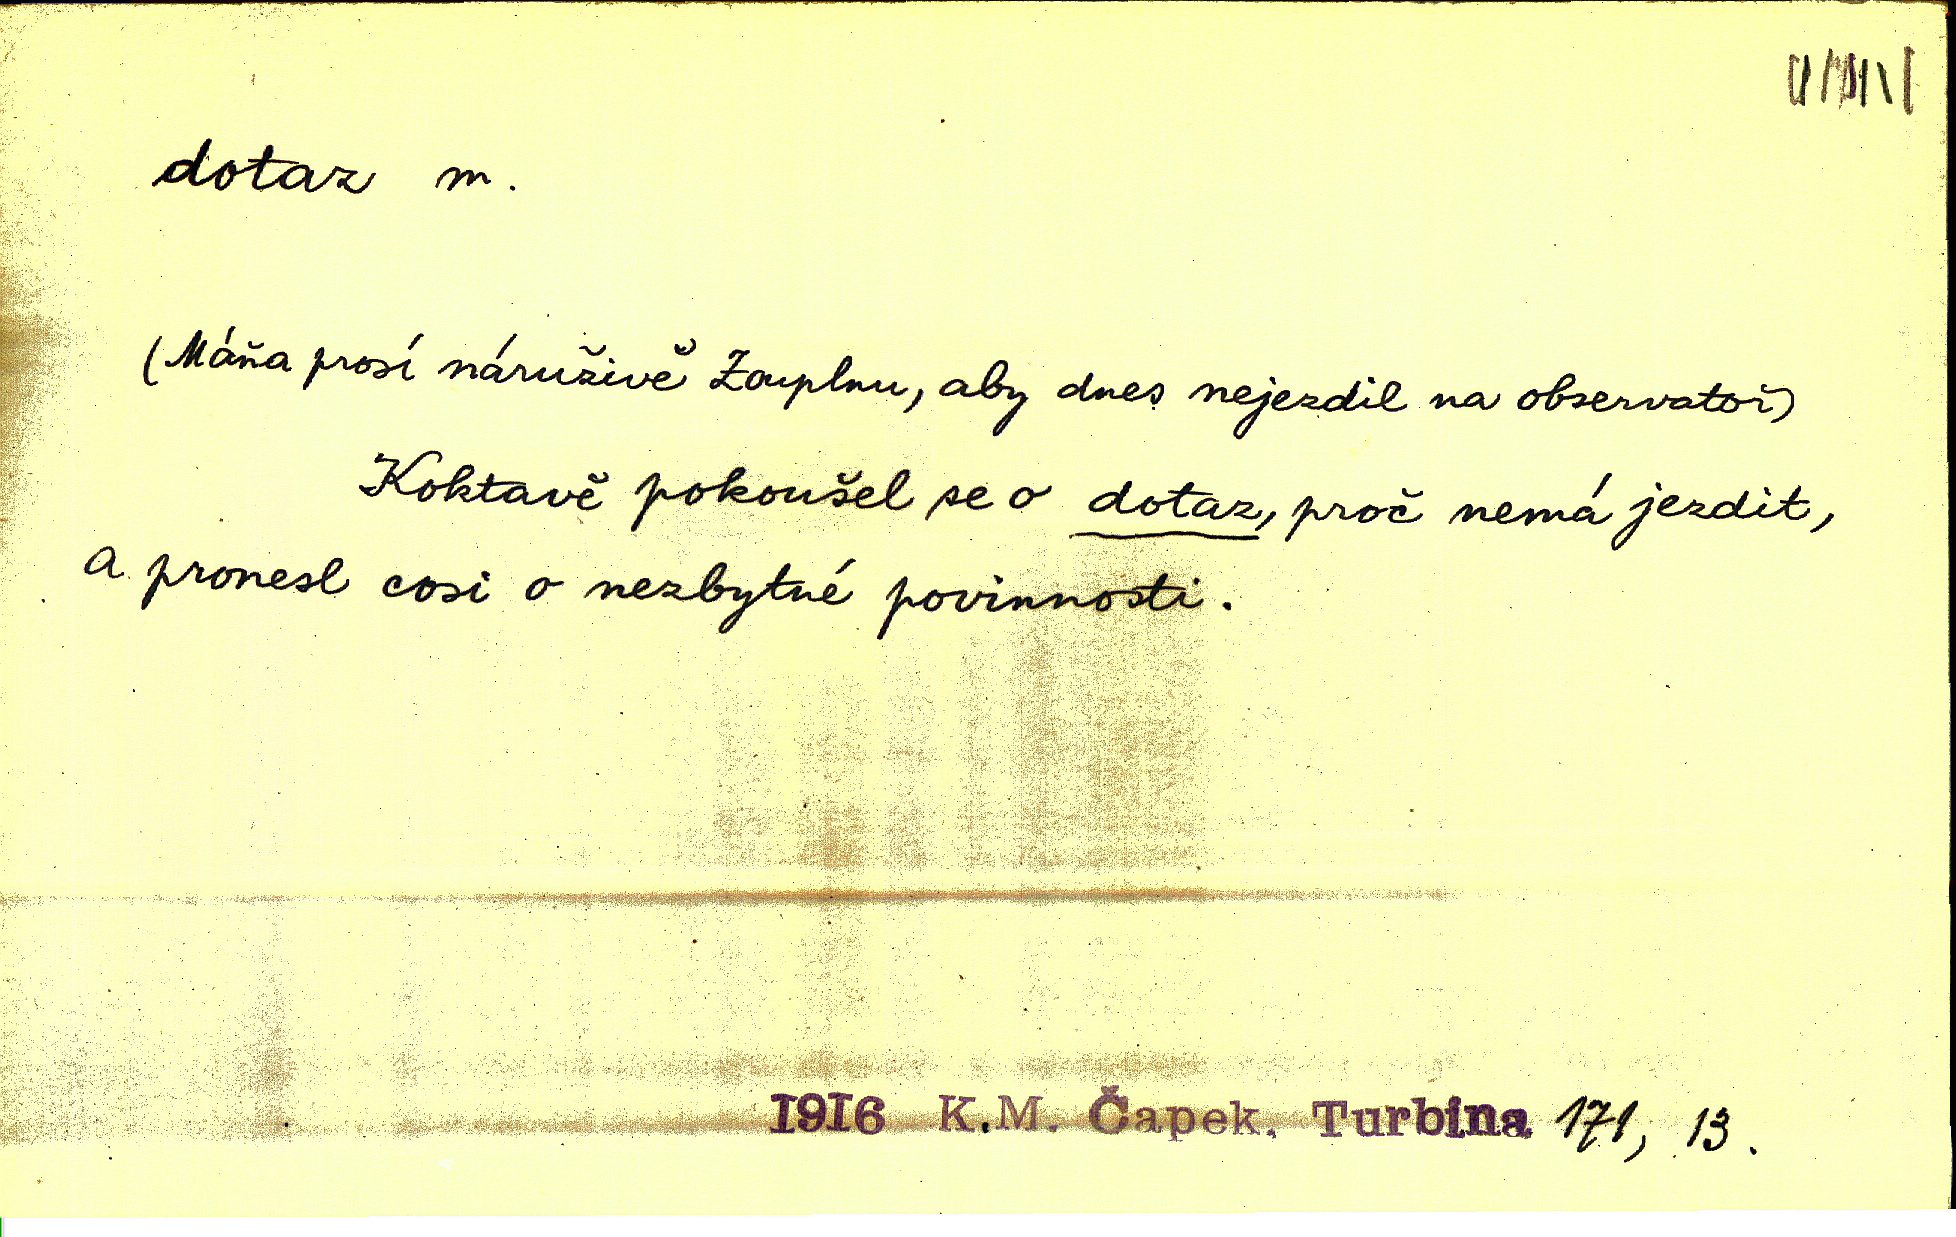 dotaz m.
(Máňa prosí náruživě Zouplnu, aby dnes nejezdil na observatoř)
Koktavě pokoušel se o dotaz, proč nemá jezdit,
a pronesl cosi o nezbytné povinnosti.
1916 K.M. Čapek. Turbina 171, 13.